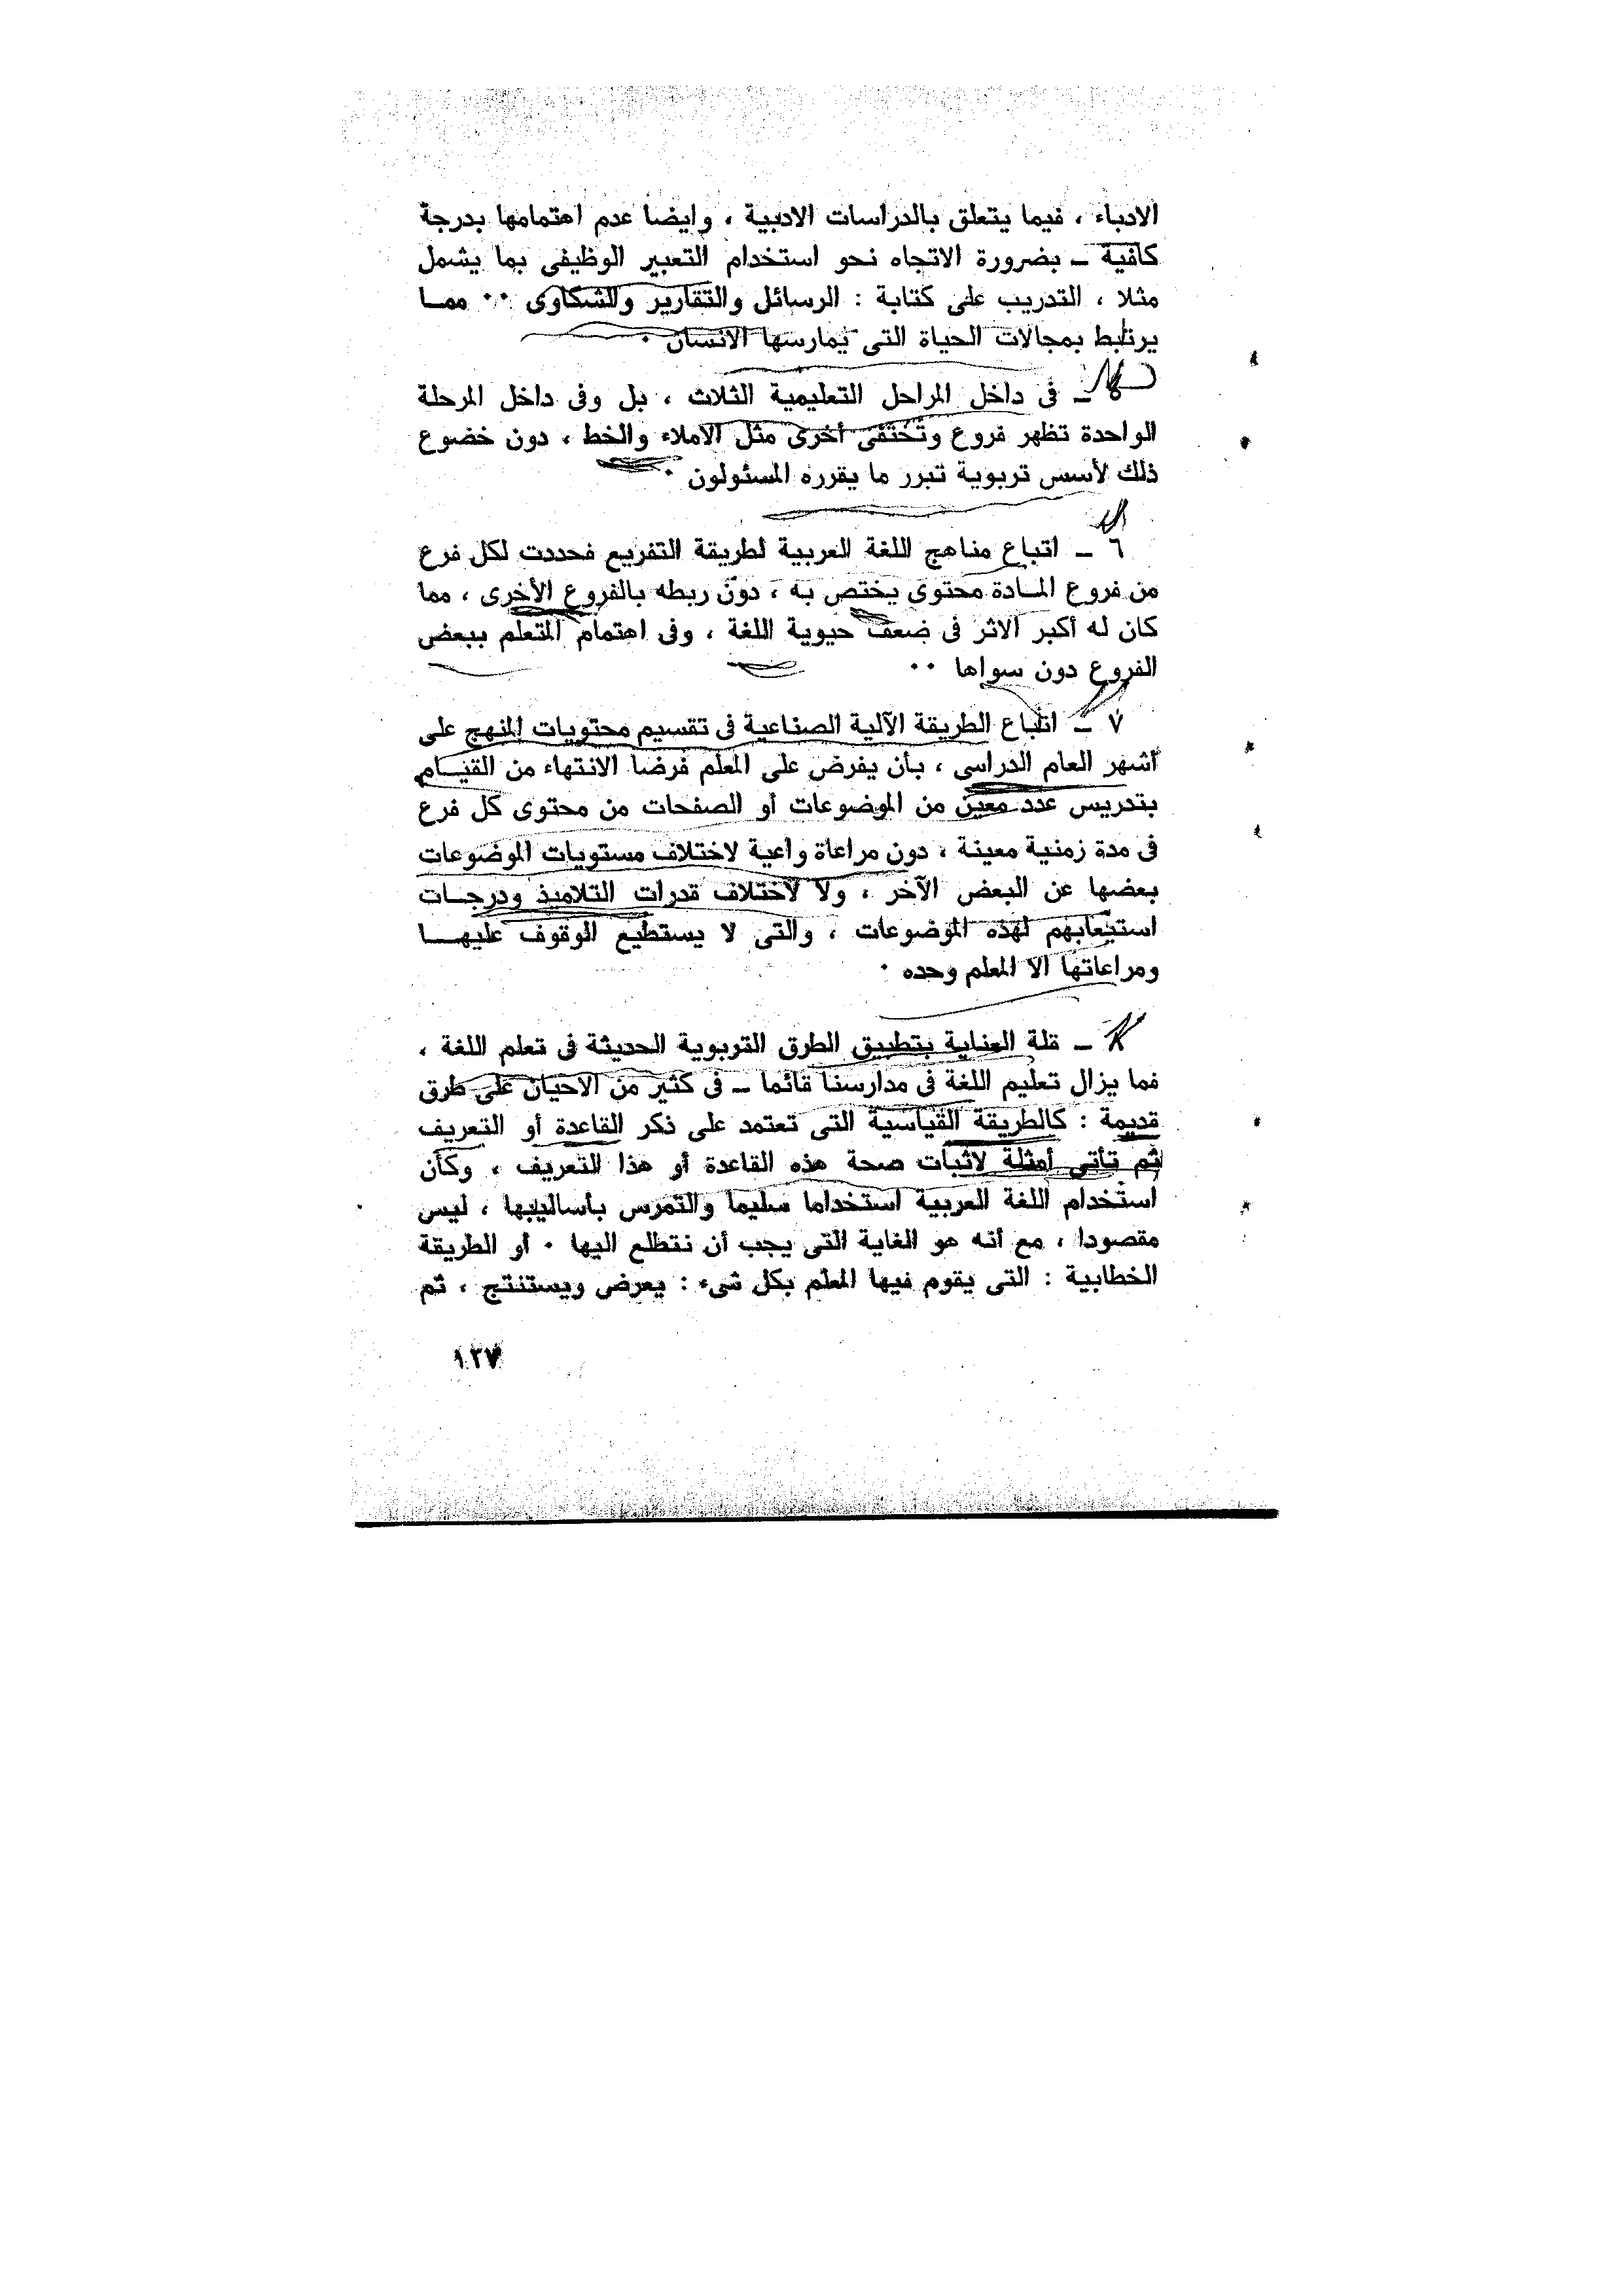 الادباء ، فيما يتعلق بالدراسات الادبية ، وايضا عدم اهتمامها بدرجة
كافية ــ بضرورة الاتجاه نحو استخدام التعبير الوظيفى بما يشمل
مثلا ، التدريب على كتابة : الرسائل والتقارير والشكاوى ٠٠ ممـا
يرتبط بمجالات الحياة التى يمارسها الانسان ٠
ــ فى داخل المراحل التعليمية الثلاث ، بل وفى داخل المرحلة
الواحدة تظهر فروع وتختفى أخرى مثل الاملاء والخط ، دون خضوع
ذلك لأسس تربوية تبرر ما يقرره المسئولون ٠
٦ ــ اتباع مناهج اللغة العربية لطريقة التفريع فحددت لكل فرع
من فروع المـادة محتوى يختص به ، دون ربطه بالفروع الأخرى ، مما
كان له أكبر الاثر فى ضعف حيوية اللغة ، وفى اهتمام المتعلم ببعض
الفروع دون سواها ٠٠
٧ ــ اتباع الطريقة الآلية الصناعية فى تقسيم محتويات المنهج على
أشهر العام الدراسى ، بأن يفرض على المعلم فرضا الانتهاء من القيـام
بتدريس عدد معين من الموضوعات أو الصفحات من محتوى كل فرع
فى مدة زمنية معينة ، دون مراعاة واعية لاختلاف مستويات الموضوعات
بعضها عن البعض الآخر ، ولا لاختلاف قدرات التلاميذ ودرجـات
استيعابهم لهذه الموضوعات ، والتى لا يستطيع الوقوف عليهـــا
ومراعاتها الا المعلم وحده ٠
٨ ــ قلة العناية بتطبيق الطرق التربوية الحديثة فى تعلم اللغة ،
فما يزال تعليم اللغة فى مدارسنا قائما ــ فى كثير من الاحيان على طرق
قديمة : كالطريقة القياسية التى تعتمد على ذكر القاعدة أو التعريف
ثم تأتى أمثلة لاثبات صحة هذه القاعدة أو هذا التعريف ، وكأن
استخدام اللغة العربية استخداما سليما والتمرس بأساليبها ، ليس
مقصودا ، مع أنه هو الغاية التى يجب أن نتطلع اليها ٠ أو الطريقة
الخطابية : التى يقوم فيها المعلم بكل شىء : يعرض ويستنتج ، ثم
١٣٧